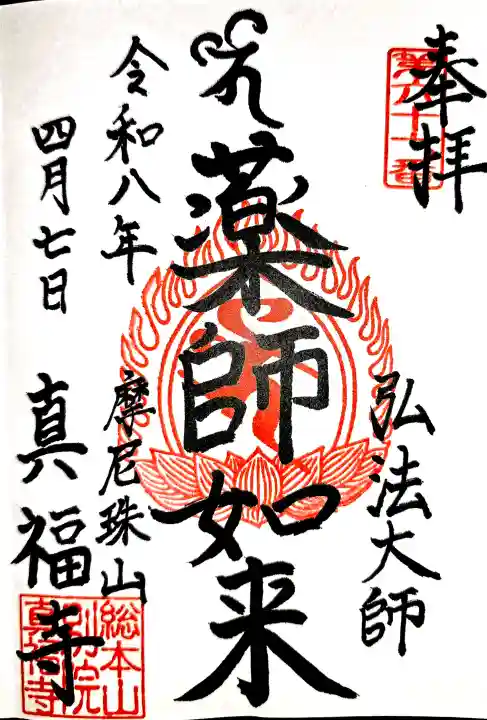 奉拝
弘法大師
薬師如来
令和八年
四月七日
摩尼珠山
真福寺
総本山
別院
真福寺